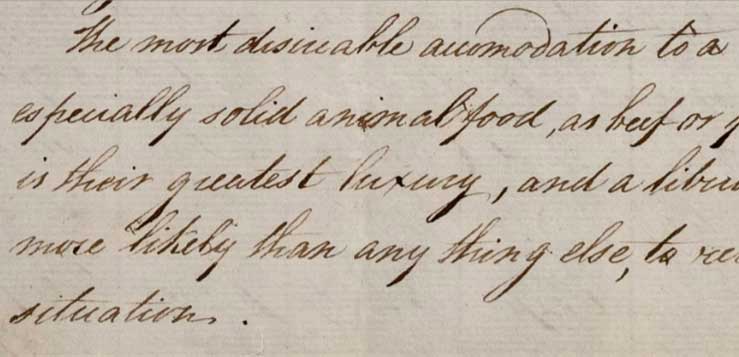 The most desireable accomodation to a
especially solid animal food, as beef or
is their greatest luxury, and a
more likely than any thing else, to
situation.